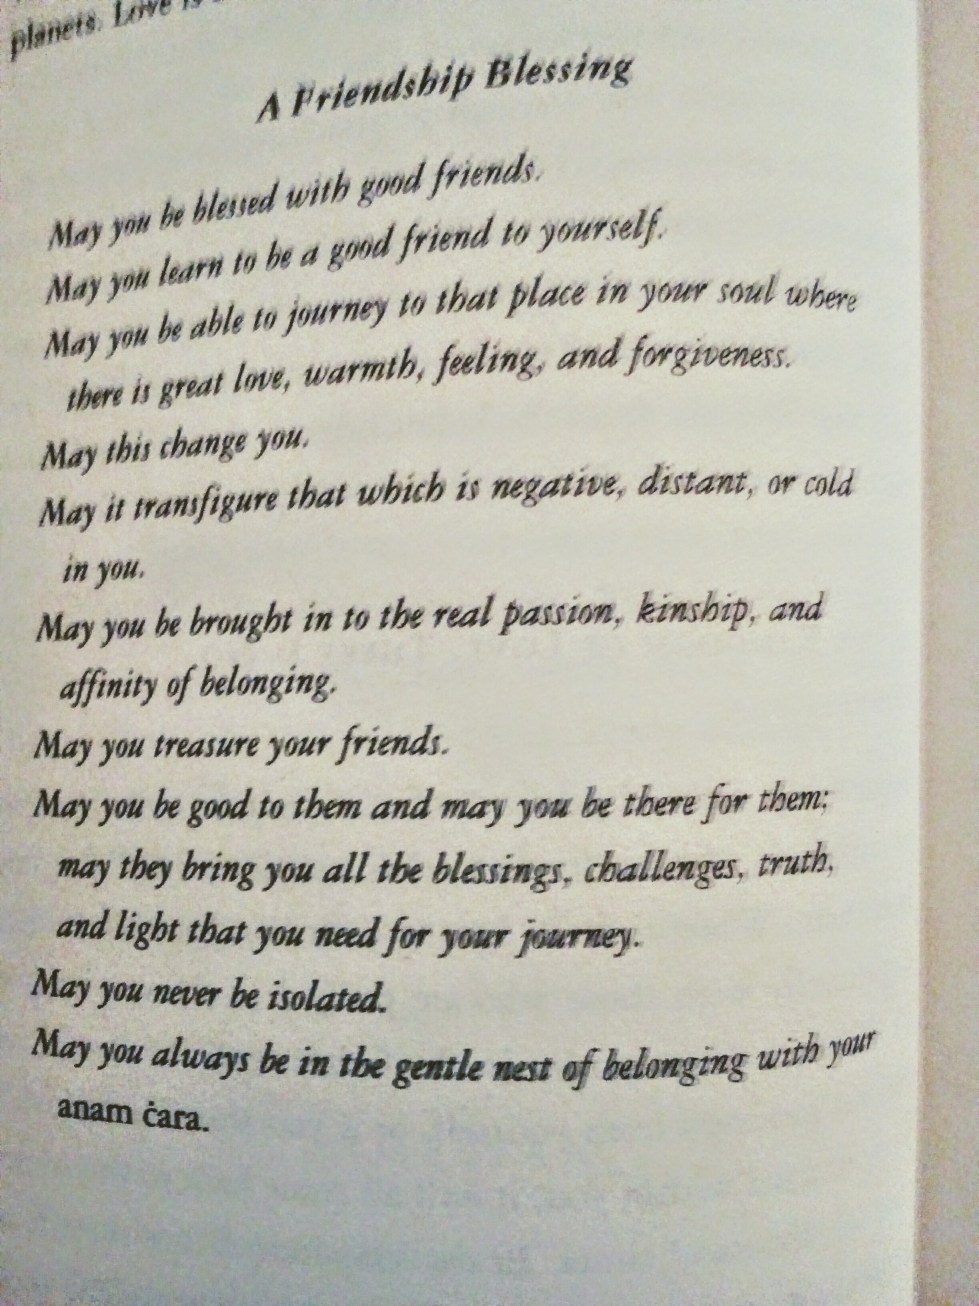 planets. Love is
A Friendship Blessing
May you be blessed with good friends.
May you learn to be a good friend to yourself.
May you be able to journey to that place in your soul where
there is great love, warmth, feeling, and forgiveness.
May this change you.
May it transfigure that which is negative, distant, or cold
in you.
May you be brought in to the real passion, kinship, and
affinity of belonging.
May you treasure your friends.
May you be good to them and may you be there for them;
may they bring you all the blessings, challenges, truth,
and light that you need for your journey.
May you never be isolated.
May you always be in the gentle nest of belonging with your
anam ċara.